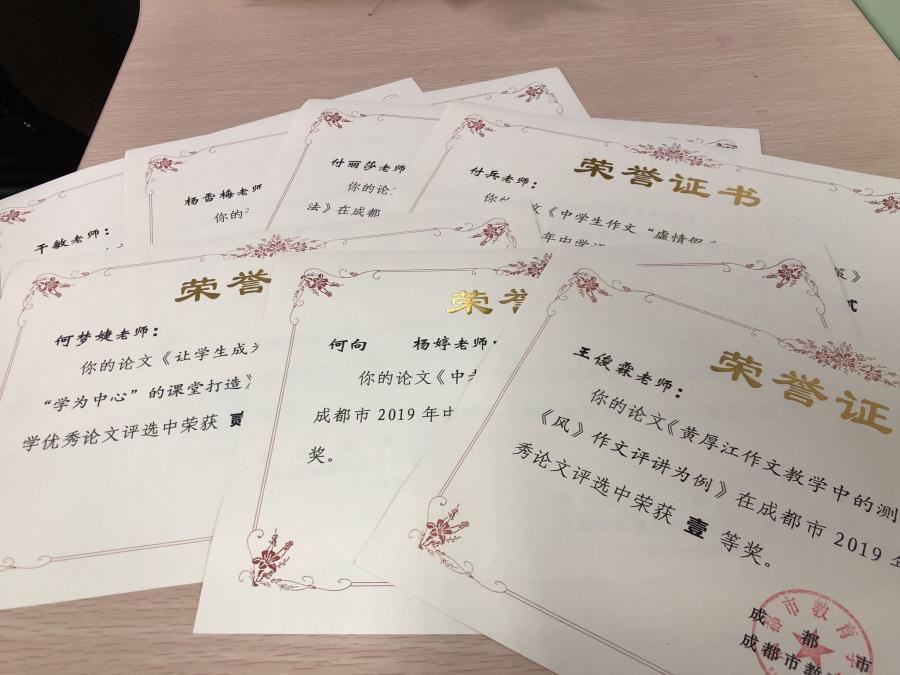 干敏老师：
杨雪梅老师
你的
付丽莎老师
你的论
法》在成都
荣誉证书
付兵老师：
你
《中学生作文“虚情
年中学
荣誉
何梦婕老师：
你的论文《让学生成
“学为中心”的课堂打造》
学优秀论文评选中荣获 壹
荣
何向 杨婷老师：
你的论文《中
成都市 2019 年
奖。
荣誉证
王俊霖老师：
你的论文《黄厚江作文教学中的测
《风》作文评讲为例》在成都市 2019
秀论文评选中荣获 壹 等奖。
成都市
成都市
市教育学